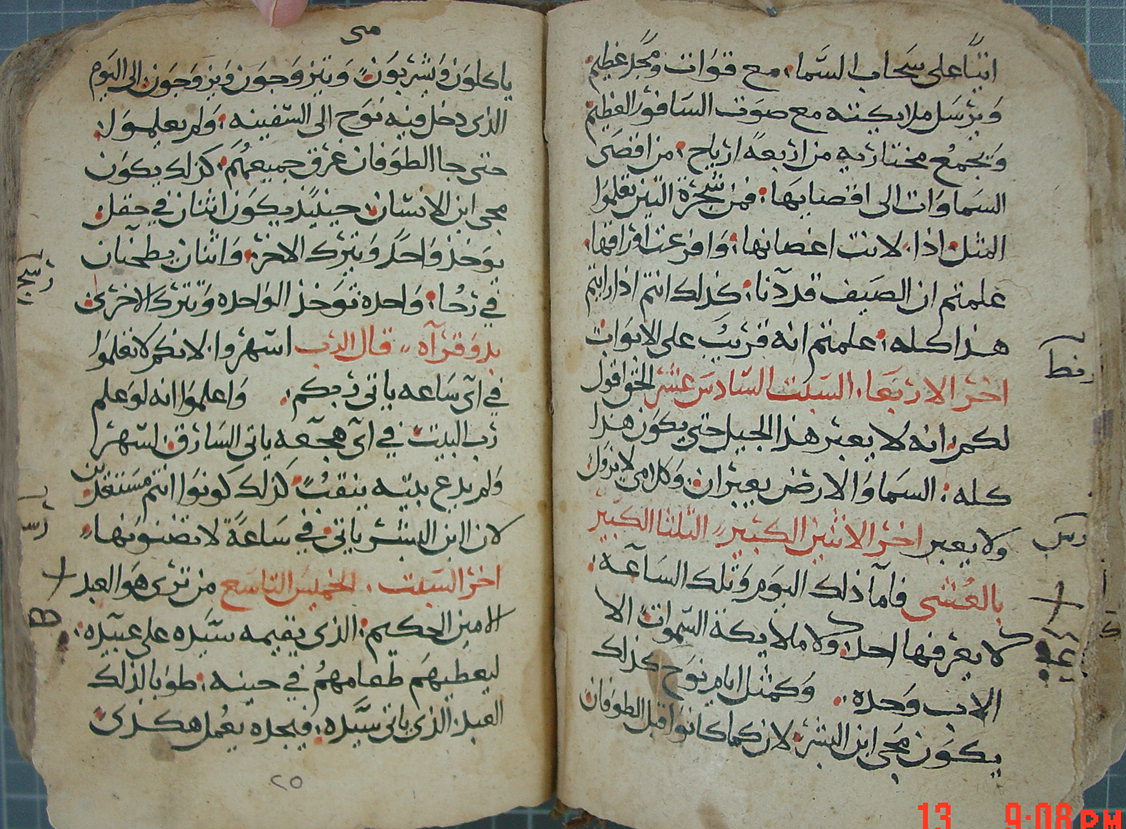 اتيًا على سحاب السما، مع قوات ومجد عظيم
ويرسل ملايكته مع صوت السافور العظيم
وتجمع مختاريه من اربعة ارياح، من اقصى
السماوات الى اقصايها، فمن شجرة التين تعلموا
المثل، اذا لانت اغصانها، وافرعت اوراقها،
علمتم ان الصيف قد دنا، كذلك انتم اذا رايتم
هذا كله، علمتم انه قريب على الابواب
اخر الاربعا، السبت السادس عشر الحق اقول
لكم، انه لا يعبر هذا الجيل حتى يكون هذا
كله، السما والارض يعبران، وكلامى لا يزول
ولا يعبر اخر الاثنين الكبير، الثلثا الكبير
بالعشى فاما ذلك اليوم وتلك الساعة،
لا يعرفها احد، ولا ملايكة السموات الا
الاب وحده، وكمثل ايام نوح كذلك
يكون مجى ابن البشر، لان كما كانوا قبل الطوفان
متى
ياكلون ويشربون، ويتزوجون ويزوجون، الى اليوم
الذى دخل فيه نوح الى السفينه، ولم يعلموا،
حتى جا الطوفان غرق جميعهم، كذلك يكون
مجى ابن الانسان، حينيذ يكون اثنان في حقل
يوخذ واحد ويترك الاخر، واثنان يطحنان
في رحا، واحده توخذ الواحده وتترك الاخرى
بدو قراه، قال الرب اسهروا، لانكم لا تعلموا
في اى ساعه ياتى ربكم، واعلموا انه لو علم
رب البيت في اى هجعه ياتى السارق، لسهر
ولم يدع بيته ينقب، كذلك كونوا انتم مستعدين
لان ابن البشر ياتى، في ساعة لا تضنونها،
اخر السبت، الخميس التاسع من ترى هو العبد
الامين الحكيم، الذى يقيمه سيده على عبيده،
ليعطيهم طعامهم في حينه، طوبا لذلك
العبد، الذى ياتى سيده، فيجده يعمل هكذى
٢٥
13 9:08 PM